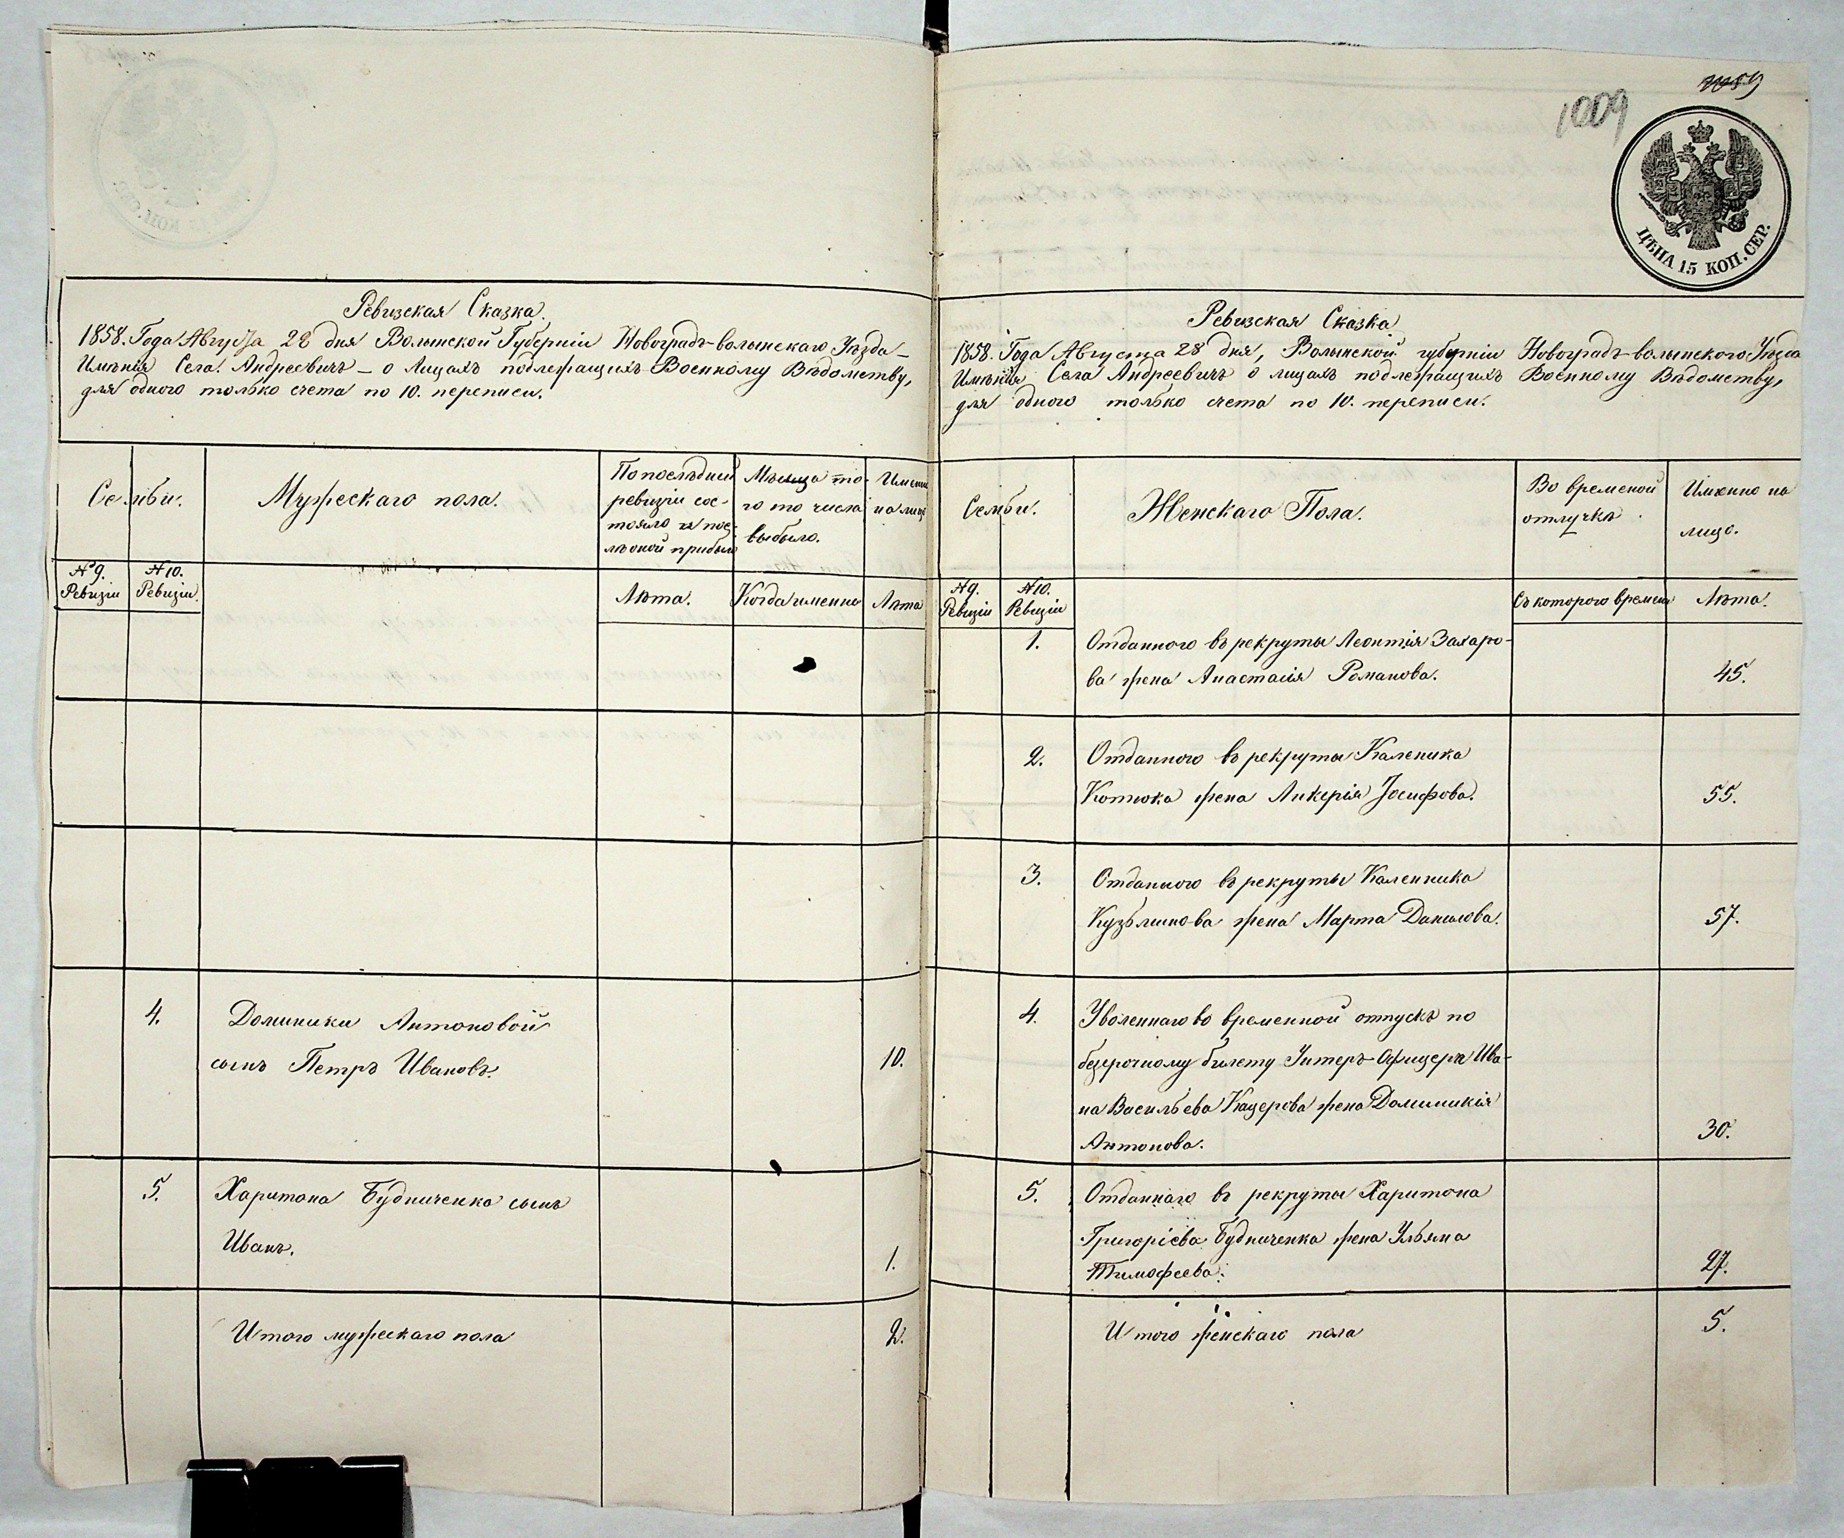 Ревизская Сказка.
1858. Года Августа 28 дня Волынской Губерніи Новоградъ-волынскаго Уѣзда
Имѣнія Села Андреевичъ – о Лицахъ подлежащихъ Военному Вѣдомству,
для одного только счета по 10. переписи.
Семьи.
Мужескаго пола.
По послѣдней
ревизіи сос-
тояло и пос-
лѣ оной прибыло
Изъ
то-
го то числа
выбыло.
Именно
на лицо
№ 9.
Ревизіи
№ 10.
Ревизіи.
Лѣта.
Когда именно
Лѣта
4.
Доминики Антоновой
сынъ Петръ Ивановъ.
10.
5.
Харитона Будниченка сынъ
Иванъ.
1.
Итого мужескаго пола
2.
1009
ЦѢНА 15 КОП. СЕР.
Ревизская Сказка
1858. Года Августа 28 дня, Волынской губерніи Новоградъ-волынского Уѣзда
Имѣнія Села Андреевичъ о лицахъ подлежащихъ Военному Вѣдомству,
для одного только счета по 10. переписи.
Семьи.
Женскаго Пола.
Во временой
отлучкѣ
Именно на
лицо.
№ 9.
Ревизіи
№ 10.
Ревизіи
Съ которого времени
Лѣта.
1.
Отданного въ рекруты Леонтія Захаро-
ва жена Анастасія Романова.
45.
2.
Отданного въ рекруты Каленика
Котюка жена Ликерія Іосифова.
55.
3.
Отданного въ рекруты Каленника
Кузьминова жена Марта Данилова.
57.
4.
Уволеннаго во временной отпускъ по
безсрочному билету Унтеръ-Офицера Ива-
на Васильева Кацерова жена Доминикія
Антонова.
30.
5.
Отданнаго въ рекруты Харитона
Григоріева Будниченка жена Ульяна
Тимофеева.
27.
Итого женскаго пола
5.